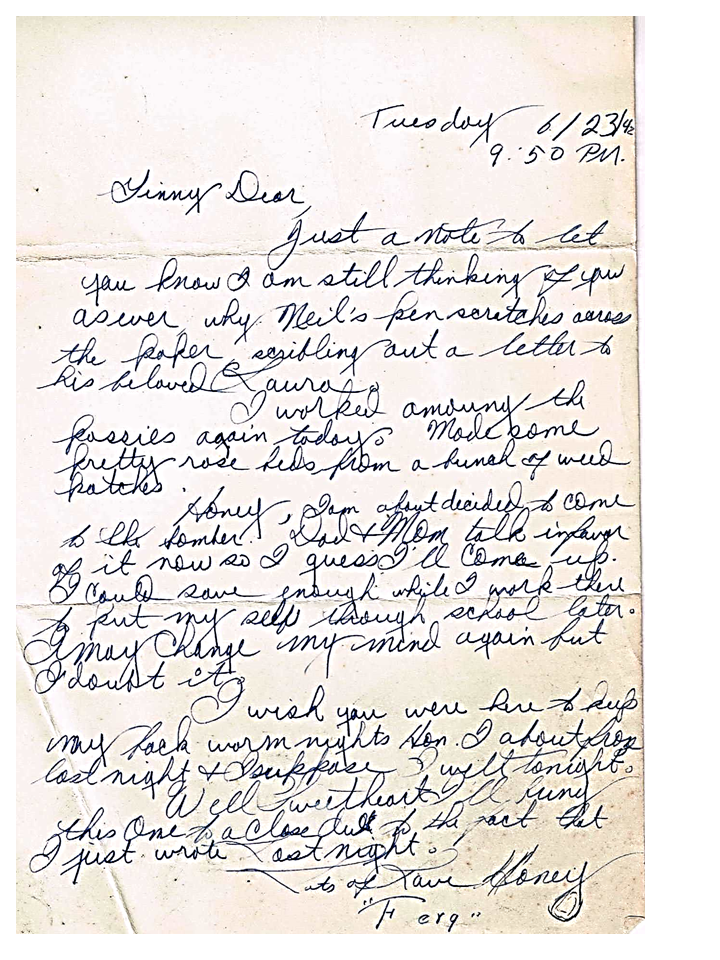 Tuesday 6/23/42
9:50 PM.
Ginny Dear,
Just a note to let
you know I am still thinking of you
as ever why Neil's pen scratches across
the paper scribling out a letter to
his beloved Laura.
I worked amoung the
possies again today. Made some
pretty rose beds from a bunch of weed
patches.
Honey, I am about decided to come
to the bomber. Dad & Mom talk in favor
of it now so I guess I'll come up.
I could save enough while I work there
to put my self through school later.
I may change my mind again but
I doubt it.
I wish you were here to keep
my back warm nights Hon. I about froze
last night & I suppose I will tonight.
Well Sweetheart I'll bring
this One to a Close due to the fact that
I just wrote Last night.
Lots of Love Honey
"Ferg"